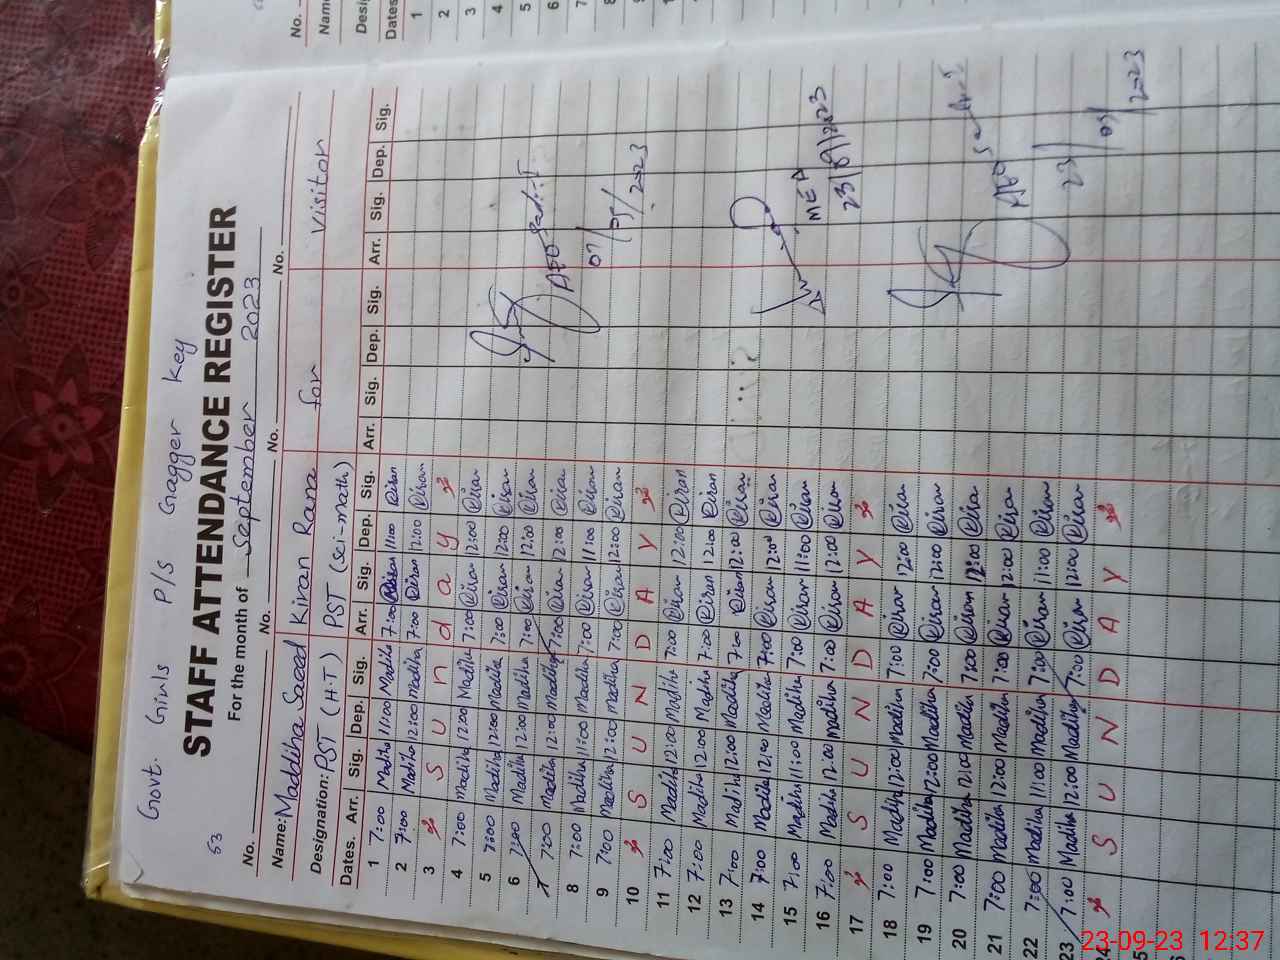 Govt. Girls P/S Gagger Key
53
STAFF ATTENDANCE REGISTER
For the month of September 2023
No. No. No. No.
Name: Madiha Saeed Kiran Rana for Visitor
Designation: PST (H.T) PST (Sci-math)
Dates. Arr. Sig. Dep. Sig. Arr. Sig. Dep. Sig. Arr. Sig. Dep. Sig. Arr. Sig. Dep. Sig.
1 7:00 Madiha 11:00 Madiha 7:00 Kiran 11:00 Kiran
2 7:00 Madiha 12:00 Madiha 7:00 Kiran 12:00 Kiran
3 S u n d a y
4 7:00 Madiha 12:00 Madiha 7:00 Kiran 12:00 Kiran
5 7:00 Madiha 12:00 Madiha 7:00 Kiran 12:00 Kiran
6 7:00 Madiha 12:00 Madiha 7:00 Kiran 12:00 Kiran
7:00 Madiha 12:00 Madiha 7:00 Kiran 12:00 Kiran
8 7:00 Madiha 11:00 Madiha 7:00 Kiran 11:00 Kiran
9 7:00 Madiha 12:00 Madiha 7:00 Kiran 12:00 Kiran
10 S U N D A Y
11 7:00 Madiha 12:00 Madiha 7:00 Kiran 12:00 Kiran
12 7:00 Madiha 12:00 Madiha 7:00 Kiran 12:00 Kiran
13 7:00 Madiha 12:00 Madiha 7:00 Kiran 12:00 Kiran
14 7:00 Madiha 12:00 Madiha 7:00 Kiran 12:00 Kiran
15 7:00 Madiha 11:00 Madiha 7:00 Kiran 11:00 Kiran
16 7:00 Madiha 12:00 Madiha 7:00 Kiran 12:00 Kiran
17 S U N D A Y
18 7:00 Madiha 12:00 Madiha 7:00 Kiran 12:00 Kiran
19 7:00 Madiha 12:00 Madiha 7:00 Kiran 12:00 Kiran
20 7:00 Madiha 12:00 Madiha 7:00 Kiran 12:00 Kiran
21 7:00 Madiha 12:00 Madiha 7:00 Kiran 12:00 Kiran
22 7:00 Madiha 11:00 Madiha 7:00 Kiran 11:00 Kiran
23 7:00 Madiha 12:00 Madiha 7:00 Kiran 12:00 Kiran
24 S U N D A Y
AEO
07/09/2023
MEA
23/9/2023
AEO
23/09/2023
No.
Name
Desig
Dates
1
2
3
4
5
6
7
8
23-09-23 12:37